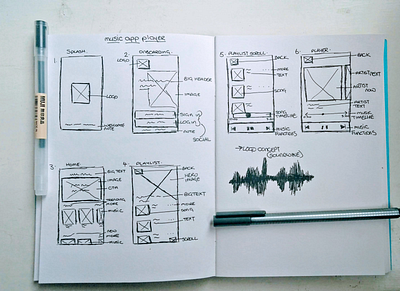 music app player
1. SPLASH.
LOGO
WELCOME
NOTE
2. ONBOARDING.
LOGO
BIG HEADER
IMAGE
SIGN UP
LOG IN
NOTE
SOCIAL
3. HOME
BIG TEXT
IMAGE
CTA
TRENDING
MORE
MUSIC
NEW
MORE
MUSIC
4. PLAYLIST.
BACK
HERO
IMAGE
BIG TEXT
MORE
SONG
TEXT
SCROLL
5. PLAYLIST SCROLL
BACK
MORE
TEXT
SONG
SONG
TIMELINE
MUSIC
FUNCTIONS
6. PLAYER
BACK
ARTIST TEXT
ARTIST
NOW
ARTIST
TEXT
MUSIC
TIMELINE
MUSIC
FUNCTIONS
LOGO CONCEPT
(SOUNDWAVE)